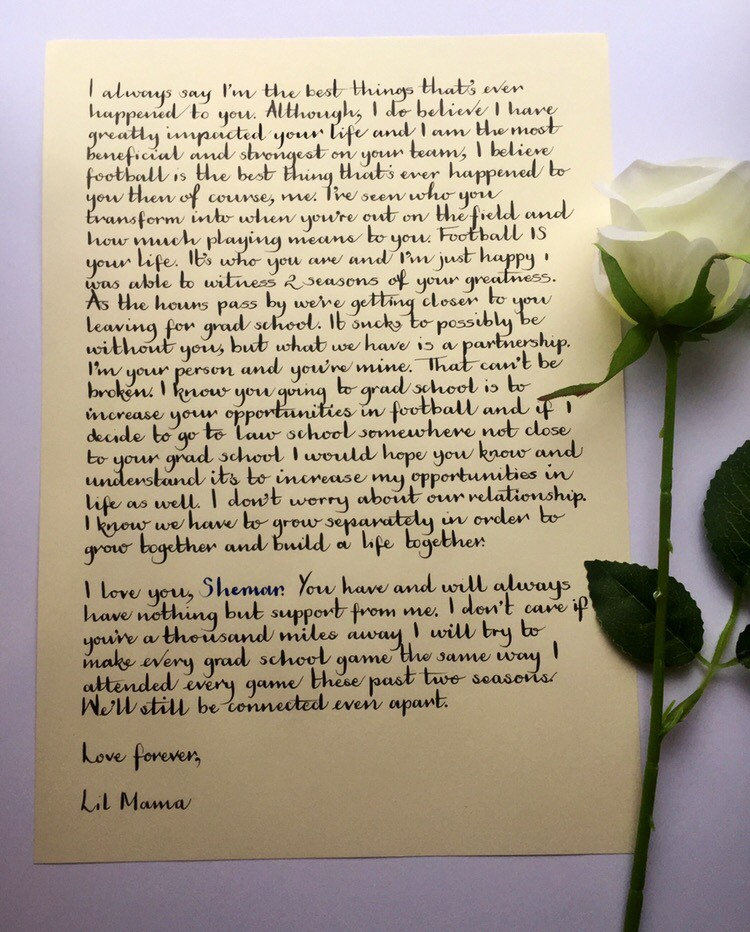 I always say I'm the best things that's ever
happened to you. Although, I do believe I have
greatly impacted your life and I am the most
beneficial and strongest on your team, I believe
football is the best thing that's ever happened to
you then of course, me. I've seen who you
transform into when you're out on the field and
how much playing means to you. Football IS
your life. It's who you are and I'm just happy I
was able to witness 2 seasons of your greatness.
As the hours pass by we're getting closer to you
leaving for grad school. It sucks to possibly be
without you, but what we have is a partnership.
I'm your person and you're mine. That can't be
broken. I know you going to grad school is to
increase your opportunities in football and if I
decide to go to law school somewhere not close
to your grad school I would hope you know and
understand it's to increase my opportunities in
life as well. I don't worry about our relationship.
I know we have to grow separately in order to
grow together and build a life together.
I love you, Shemar. You have and will always
have nothing but support from me. I don't care if
you're a thousand miles away I will try to
make every grad school game the same way I
attended every game these past two seasons.
We'll still be connected even apart.
Love forever,
Lil Mama